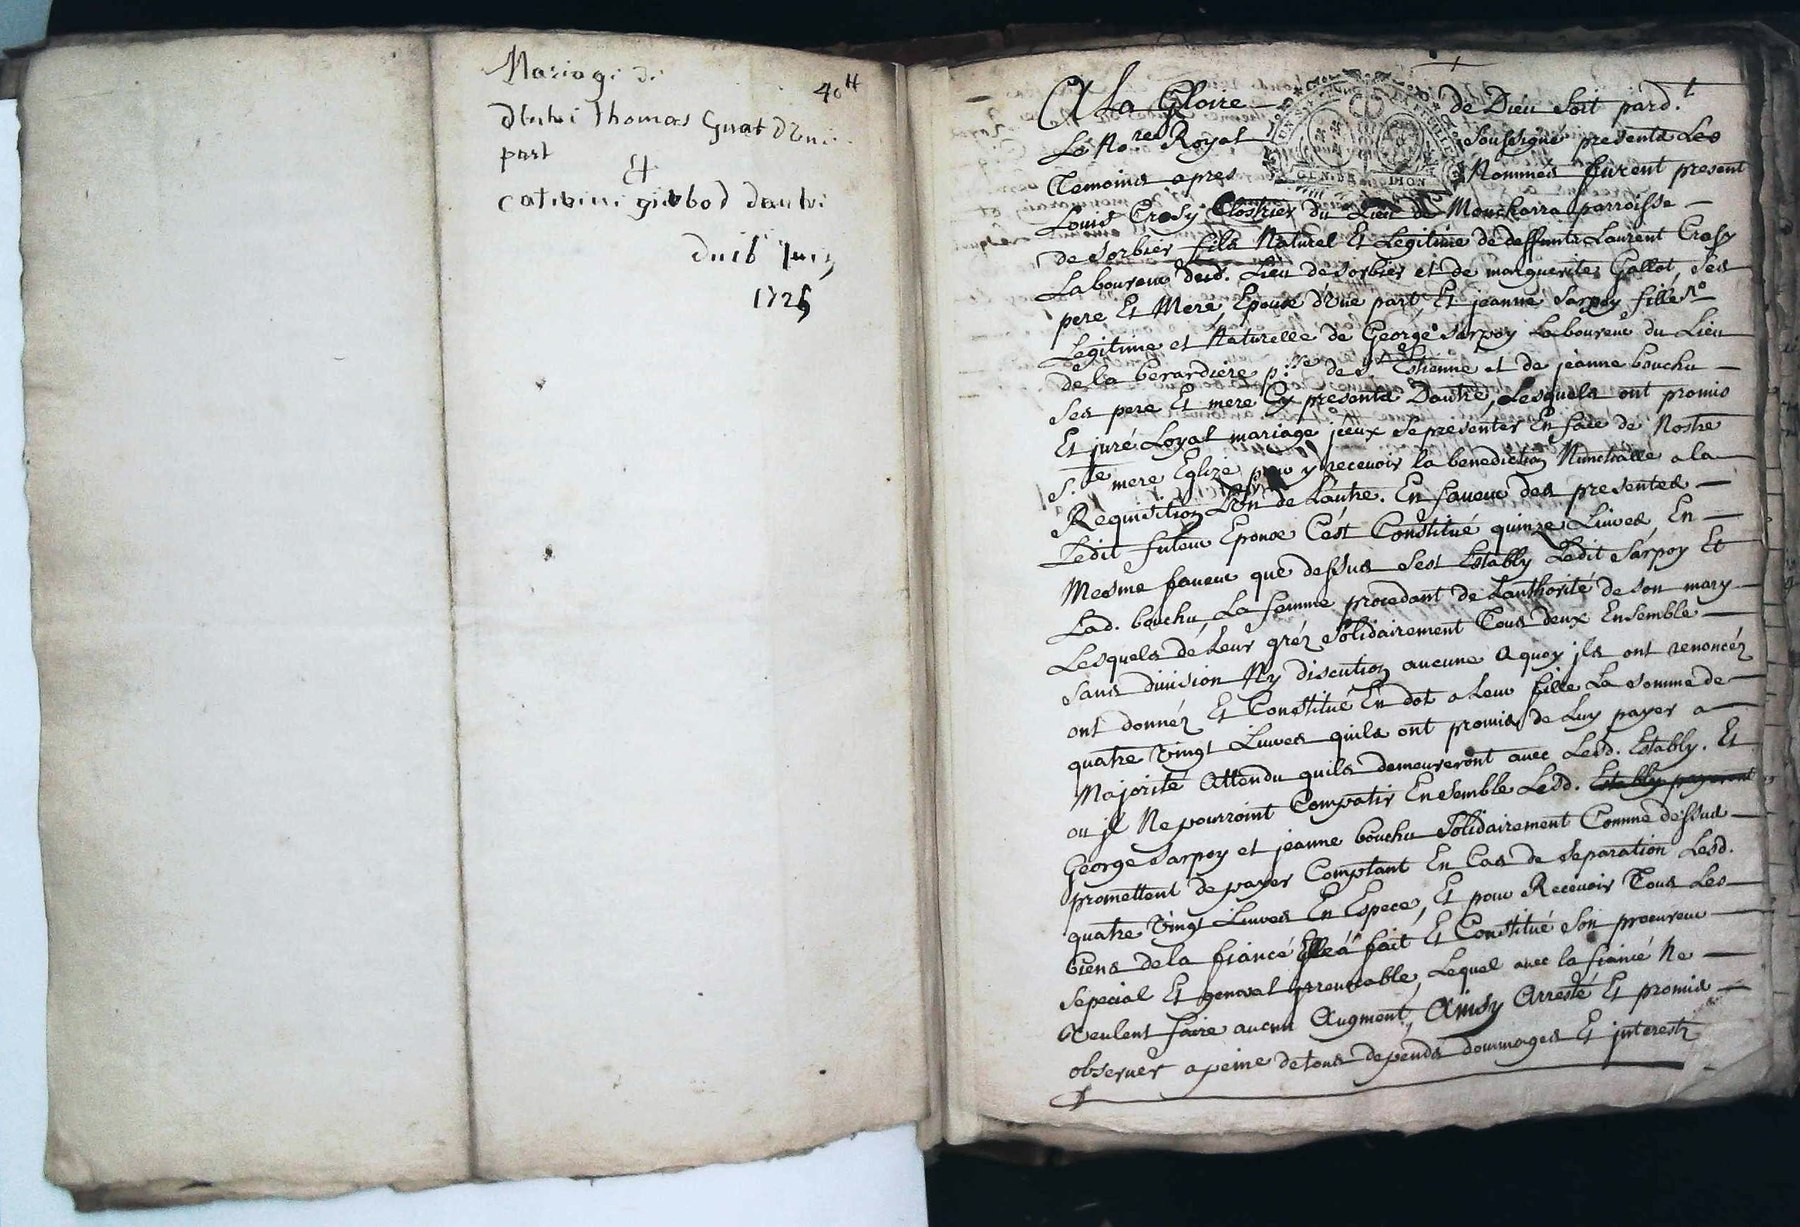 Mariage de
40tt
d'entre Thomas Guat d'Une
part
Et
catherine girbod dautre
du 16 Juin
1725
A La Gloire de Dieu Soit pard.t
Le No.re Royal Soussigne presents Les
Temoins apres Nommés furent present
GEN DE DION
Louis Crosy Clostrier du Lieu de Moncharra parroisse
de Sorbier fils Naturel Et Legitime de deffunts Laurent Crosy
Laboureur dud. Lieu de Sorbier et de marguerite Gallot, ses
pere Et Mere, Epoux d'Une part Et jeanne Sarpoy fille
Legitime et Naturelle de George Sarpoy Laboureur du Lieu
de la berardiere p.sse de St Estienne et de jeanne bouchu
ses pere Et mere Cy presents Dautre, Lesquels ont promis
Et juré Loyal mariage jceux se presenter En face de Nostre
S.te mere Eglize pour y recevoir la benediction Nunctialle a la
Requisition L'Un de Lautre. En faveur des presentes
Ledit futeur Epouse C'est Constitué quinze Livres, En
Mesme faveur que dessus s'est Estably Ledit Sarpoy Et
Lad. bouchu, La femme procedant de Lauthorité de son mary
Lesquels de Leur gréz solidairement Tous deux Ensemble
sans division Ny discution aucune a quoy jls ont renoncéz
ont donnéz Et Constitué En dot a leur fille La somme de
quatre Vingt Livres quils ont promis de Luy payer a
Majorité Attendu quils demeureront avec Lesd. Estably. Et
ou jl Ne pourroint Compatir Ensemble Lesd. Estably payeront
George Sarpoy et jeanne bouchu Solidairement Comme dessus
promettent de payer Comptant En Cas de separation Lesd.
quatre Vingt Livres En Espece, Et pour Recevoir Tous Les
biens de la fiancé Elle a fait Et Constitué son procureur
special Et general jrrevocable, Lequel avec la fiancé Ne
Veulent faire aucun Augment, Ainsy Arresté Et promis
observer a peine de tous depends dommages Et jnterestz